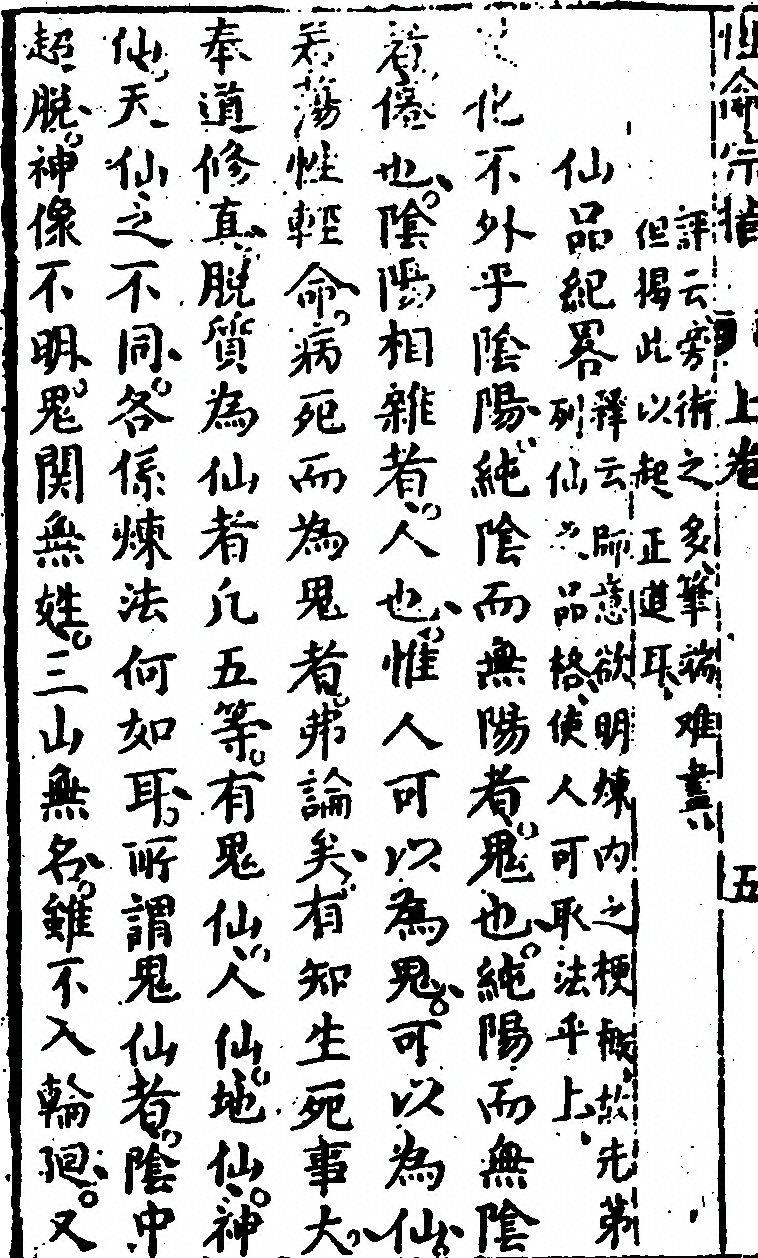 性命宗指 上卷 五
評云旁術之多筆端难盡
但揭此以起正道耳
仙品紀畧
釋云師意欲明煉内之梗概故先第
列仙之品格使人可取法乎上
化不外乎陰陽純陰而無陽者鬼也純陽而無陰
者僊也陰陽相雜者人也惟人可以為鬼可以為仙
若蕩性輕命病死而為鬼者弗論矣有知生死事大
奉道修真脫質為仙者凢五等有鬼仙人仙地仙神
仙天仙之不同各係煉法何如耳所謂鬼仙者陰中
超脫神像不明鬼関無姓三山無名雖不入輪廻又